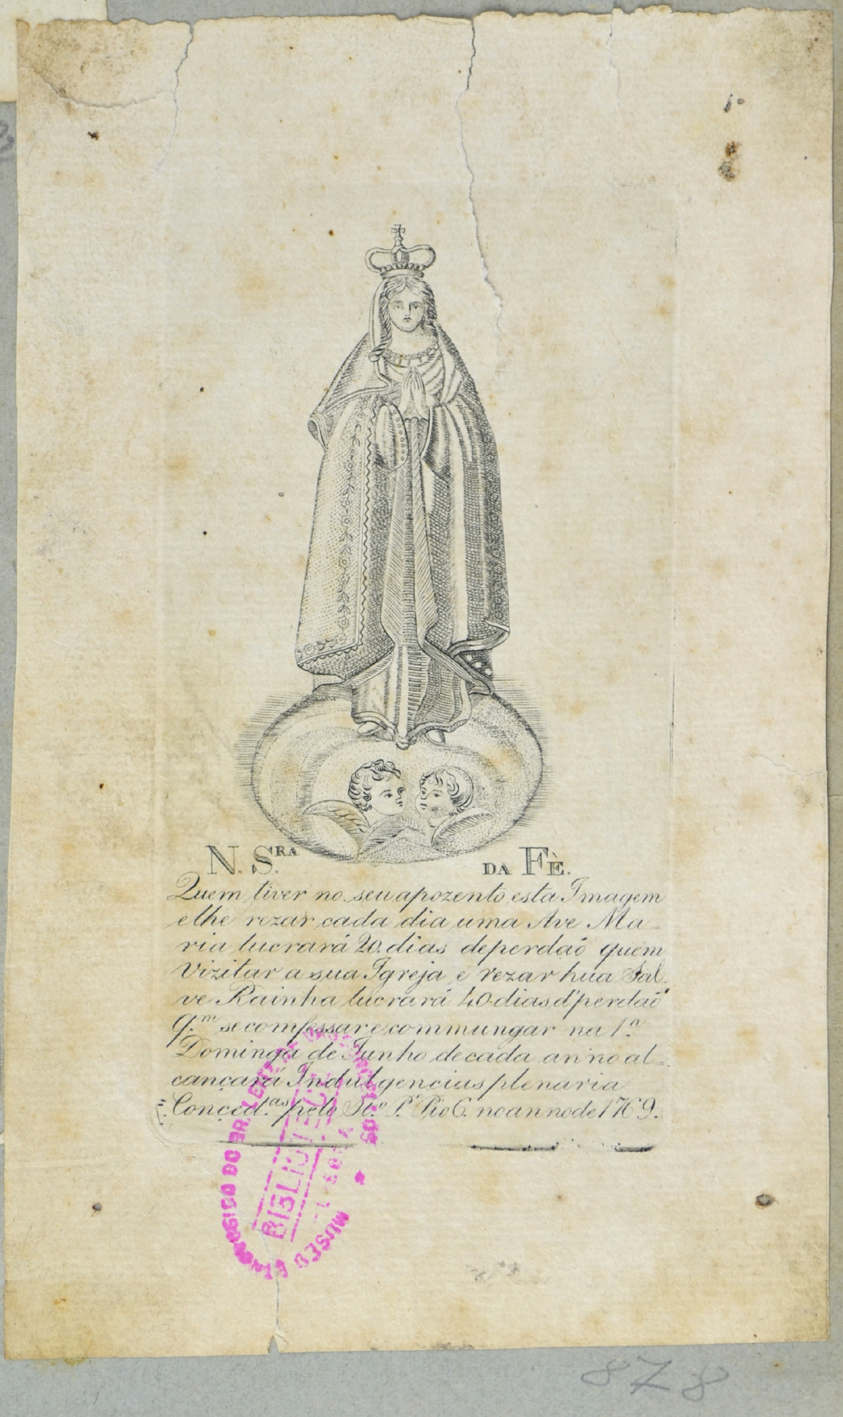 N. S.RA DA FÈ.
Quem tiver no seu apozento esta Imagem
e lhe rezar cada dia uma Ave Ma-
ria lucrará 20 dias de perdaõ quem
vizitar a sua Igreja, e rezar hũa Sal
ve Rainha lucrará 40 dias d'perdaõ
q.m se comfessar e commungar na 1.a
Dominga de Junho de cada anno al-
cançará Indulgencias plenaria
Conçed.as pelo St.o P.e Pio 6. no anno de 1769.
MUSEU
DO DR. LEITE DE VASCONCELLOS
BIBLIOTECA
878